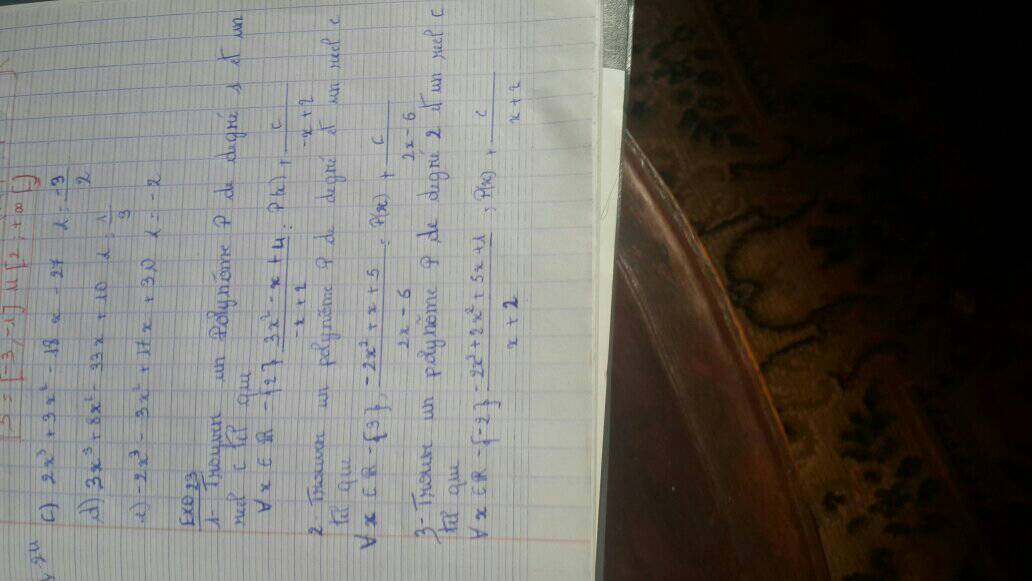 S = [-3, -1] U [2, +∞[
c) 2x³ + 3x² - 18x - 27 α = -3/2
d) 3x³ + 8x² - 33x + 10 α = 1/3
e) -2x³ - 3x² + 17x + 30 α = -2
Exo 23
1- Trouver un Polynôme P de degré 1 et un
réel c tel que
∀x ∈ ℝ - {2}, (3x² - x + 4)/(-x + 2) = P(x) + c/(-x + 2)
2- Trouver un polynôme P de degré et un réel c
tel que
∀x ∈ ℝ - {3}, (-2x² + x + 5)/(2x - 6) = P(x) + c/(2x - 6)
3- Trouver un polynôme P de degré 2 et un réel c
tel que
∀x ∈ ℝ - {-2} (-2x³ + 2x² + 5x + 1)/(x + 2) = P(x) + c/(x + 2)